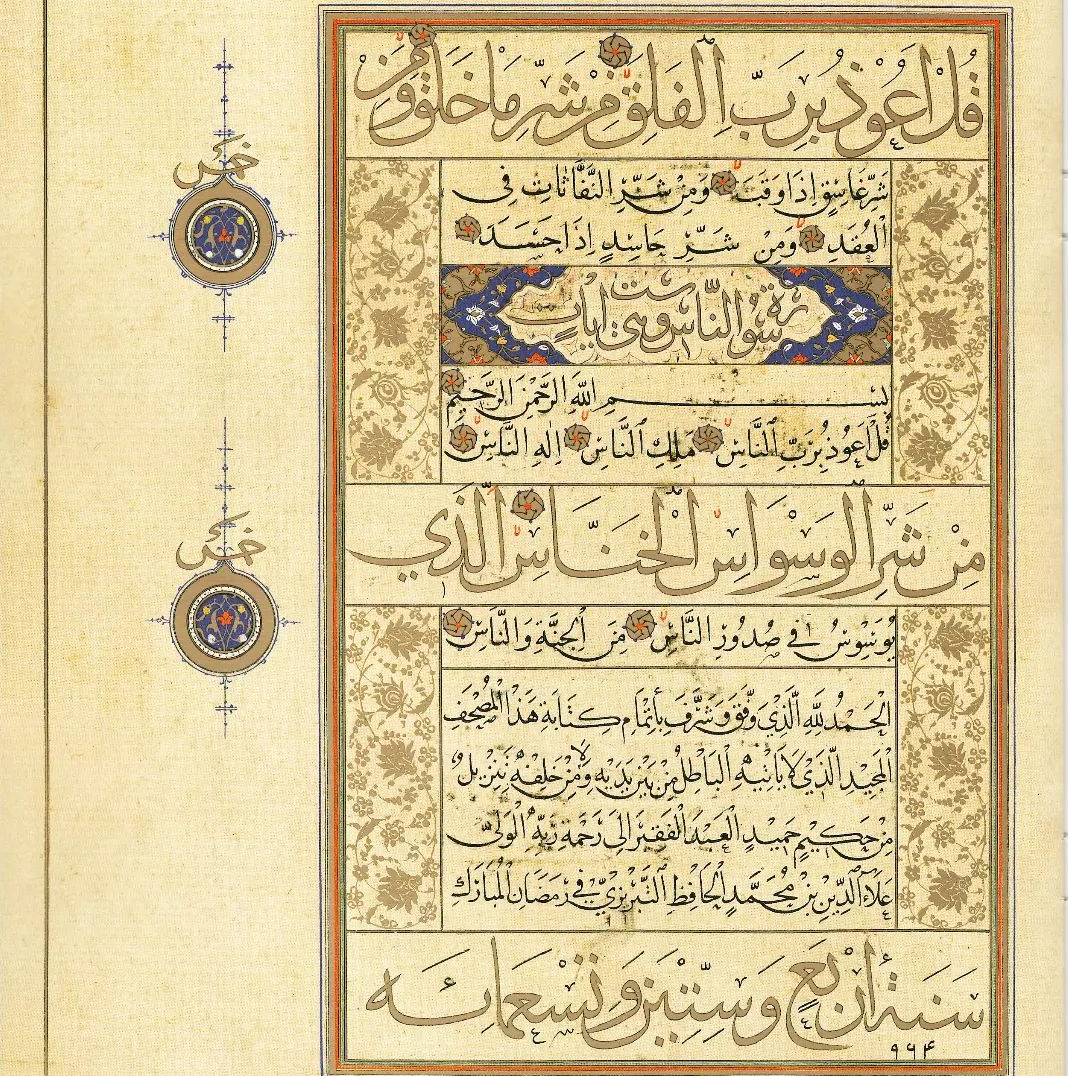 قُلْ اَعُوذُ بِرَبِّ الْفَلَقِ مِنْ شَرِّ مَا خَلَقَ وَمِنْ
شَرِّ غَاسِقٍ اِذَا وَقَبَ وَمِنْ شَرِّ النَّفَّاثَاتِ فِى
الْعُقَدِ وَمِنْ شَرِّ حَاسِدٍ اِذَا حَسَدَ
سورة الناس وهى ست ايات
بِسْمِ اللّٰهِ الرَّحْمٰنِ الرَّحِيمِ
قُلْ اَعُوذُ بِرَبِّ النَّاسِ مَلِكِ النَّاسِ اِلٰهِ النَّاسِ
مِنْ شَرِّ الْوَسْوَاسِ الْخَنَّاسِ الَّذِي
يُوَسْوِسُ فِي صُدُورِ النَّاسِ مِنَ الْجِنَّةِ وَالنَّاسِ
الْحَمْدُ لِلّٰهِ الَّذِي وَفَّقَ وَشَرَّفَ بِأِتْمَامِ كِتَابَةِ هَذَا الْمُصْحَفِ
الْمَجِيدِ الَّذِي لَا يَأْتِيهِ الْبَاطِلُ مِنْ بَيْنِ يَدَيْهِ وَلَا مِنْ خَلْفِهِ تَنْزِيلٌ
مِنْ حَكِيمٍ حَمِيدٍ الْعَبْدُ الْفَقِيرُ اِلَى رَحْمَةِ رَبِّهِ الْوَلِيِّ
عَلَاءُ الدِّينِ بْنِ مُحَمَّدٍ الْحَافِظِ التَّبْرِيزِيّ فِي رَمَضَانَ الْمُبَارَكِ
سَنَةَ اَرْبَعٍ وَسِتِّينَ وَتِسْعِمِائَه
۹۶۴
خمس
خمس